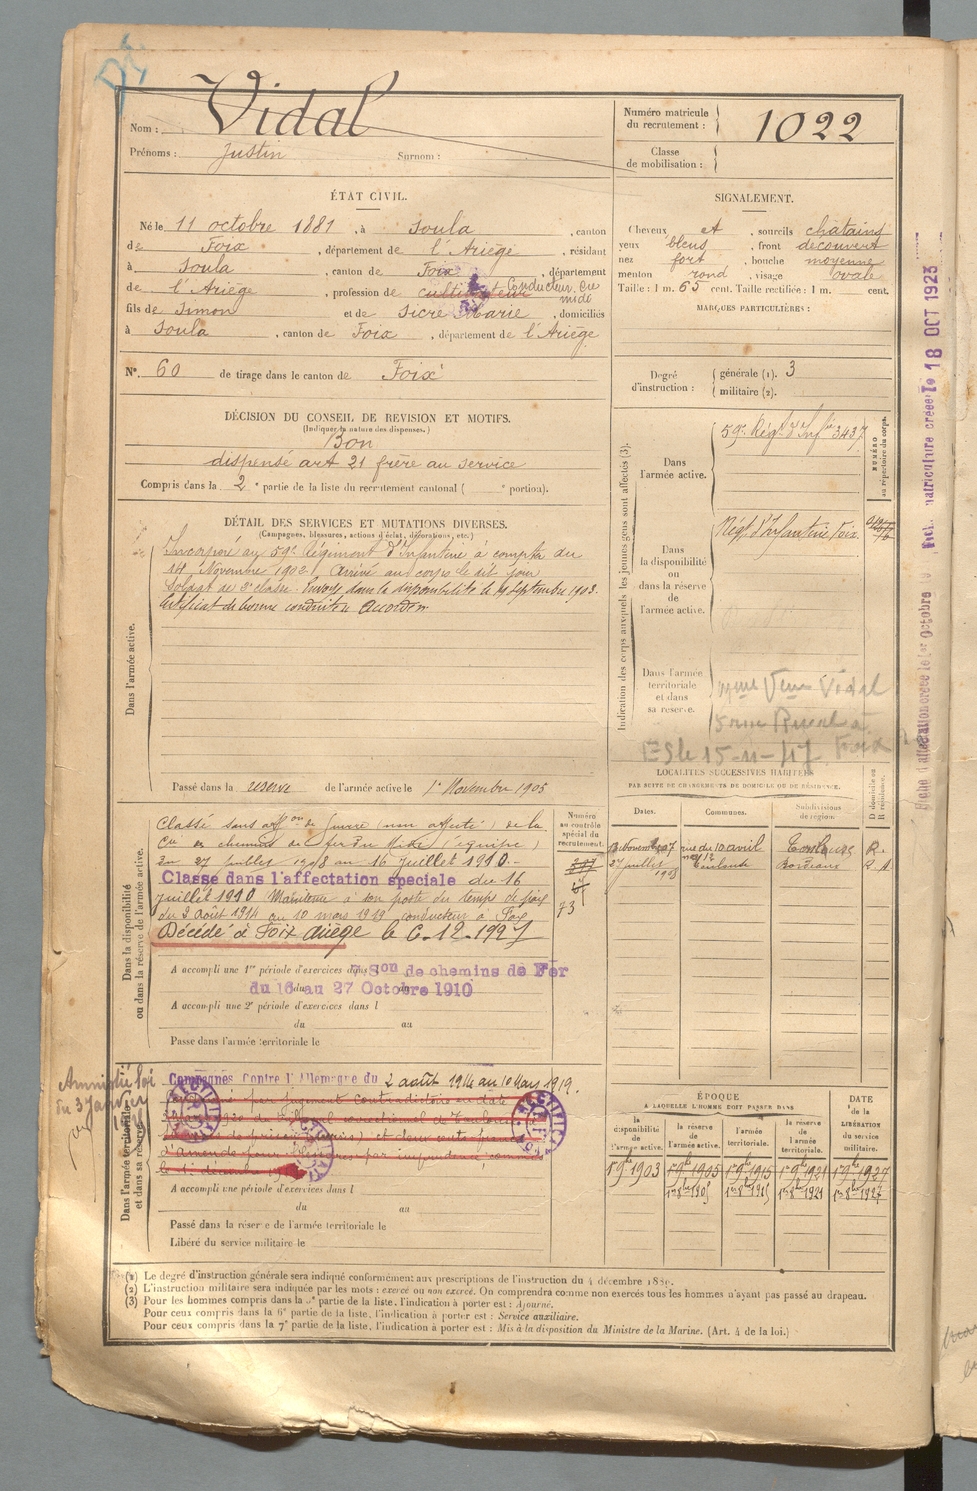 Nom : Vidal
Prénoms : Justin Surnom :
Numéro matricule
du recrutement : 1022
Classe
de mobilisation :
ÉTAT CIVIL.
Né le 11 octobre 1881, à Soula, canton
de Foix, département de l'Ariège, résidant
à Soula, canton de Foix, département
de l'Ariège, profession de cultivateur Conducteur Cie
midi
fils de Simon et de Sicre Marie, domiciliés
à Soula, canton de Foix, département de l'Ariège
N° 60 de tirage dans le canton de Foix
SIGNALEMENT.
Cheveux et, sourcils châtains
yeux bleus, front découvert
nez fort, bouche moyenne
menton rond, visage ovale
Taille : 1 m. 65 cent. Taille rectifiée : 1 m. cent.
MARQUES PARTICULIÈRES :
Degré
d'instruction :
générale (1). 3
militaire (2).
DÉCISION DU CONSEIL DE REVISION ET MOTIFS.
(Indiquer la nature des dispenses.)
Bon
dispensé art 21 frère au service
Compris dans la 2e partie de la liste du recrutement cantonal ( e portion).
DÉTAIL DES SERVICES ET MUTATIONS DIVERSES.
(Campagnes, blessures, actions d'éclat, décorations, etc.)
Dans l'armée active.
Incorporé au 59e Régiment d'Infanterie à compter du
14 Novembre 1902. Arrivé au corps le dit jour
Soldat de 2e classe. Envoyé dans la disponibilité le 19 septembre 1903.
Certificat de bonne conduite accordé
Passé dans la réserve de l'armée active le 1er Novembre 1905
Indication des corps auxquels les jeunes gens sont affectés (3).
Dans
l'armée active.
59e Régt d'Infie 3437
NUMÉRO
au répertoire du corps.
Dans
la disponibilité
ou
dans la réserve
de
l'armée active.
Régt d'Infanterie Foix
Dans l'armée
territoriale
et dans
sa réserve.
Vve Vidal
à
ES le 15-11-47 Foix
LOCALITÉS SUCCESSIVES HABITÉES
PAR SUITE DE CHANGEMENTS DE DOMICILE OU DE RÉSIDENCE.
Dates. Communes. Subdivisions
de région. D domicile ou
R résidence.
rue du 10 avril
n° 12 Toulouse Toulouse R.
27 juillet
1908 Toulouse Bordeaux R. A
Dans la disponibilité
ou dans la réserve de l'armée active.
Numéro
au contrôle
spécial du
recrutement.
73
Classé sans affon de guerre (non affecté) de la
Cie des chemins de fer du Midi (équipe)
du 27 juillet 1908 au 16 juillet 1910.-
Classé dans l'affectation spéciale du 16
juillet 1910 Maintenu à son poste du temps de paix
du 2 août 1914 au 10 mars 1919 conducteur à Foix
Décédé à Foix Ariège le 6.12.1927
A accompli une 1re période d'exercices dans Son de chemins de Fer
du 16 au 27 Octobre 1910
A accompli une 2e période d'exercices dans l
du au
Passé dans l'armée territoriale le
Dans l'armée territoriale
et dans sa réserve.
Amnistié loi
du 3 Janvier
Campagnes Contre l'Allemagne du 2 août 1914 au 10 Mars 1919.
par jugement contradictoire en date
RECTIFICATION
A accompli une période d'exercices dans l
du au
Passé dans la réserve de l'armée territoriale le
Libéré du service militaire le
ÉPOQUE
À LAQUELLE L'HOMME DOIT PASSER DANS
la
disponibilité
de
l'armée active.
la réserve
de
l'armée active.
l'armée
territoriale.
la réserve
de
l'armée
territoriale.
DATE
de la
LIBÉRATION
du service
militaire.
1er 9bre 1903 1er 9bre 1905 1er 9bre 1915 1er 9bre 1921 1er 9bre 1927
1er 8bre 1905 1er 8bre 1915 1er 8bre 1921 1er 8bre 1927
(1) Le degré d'instruction générale sera indiqué conformément aux prescriptions de l'instruction du 4 décembre 1889.
(2) L'instruction militaire sera indiquée par les mots : exercé ou non exercé. On comprendra comme non exercés tous les hommes n'ayant pas passé au drapeau.
(3) Pour les hommes compris dans la 5e partie de la liste, l'indication à porter est : Ajourné.
Pour ceux compris dans la 6e partie de la liste, l'indication à porter est : Service auxiliaire.
Pour ceux compris dans la 7e partie de la liste, l'indication à porter est : Mis à la disposition du Ministre de la Marine. (Art. 4 de la loi.)
Fiche d'affectation créée le 1er Octobre
matriculaire créée le 18 OCT 1923